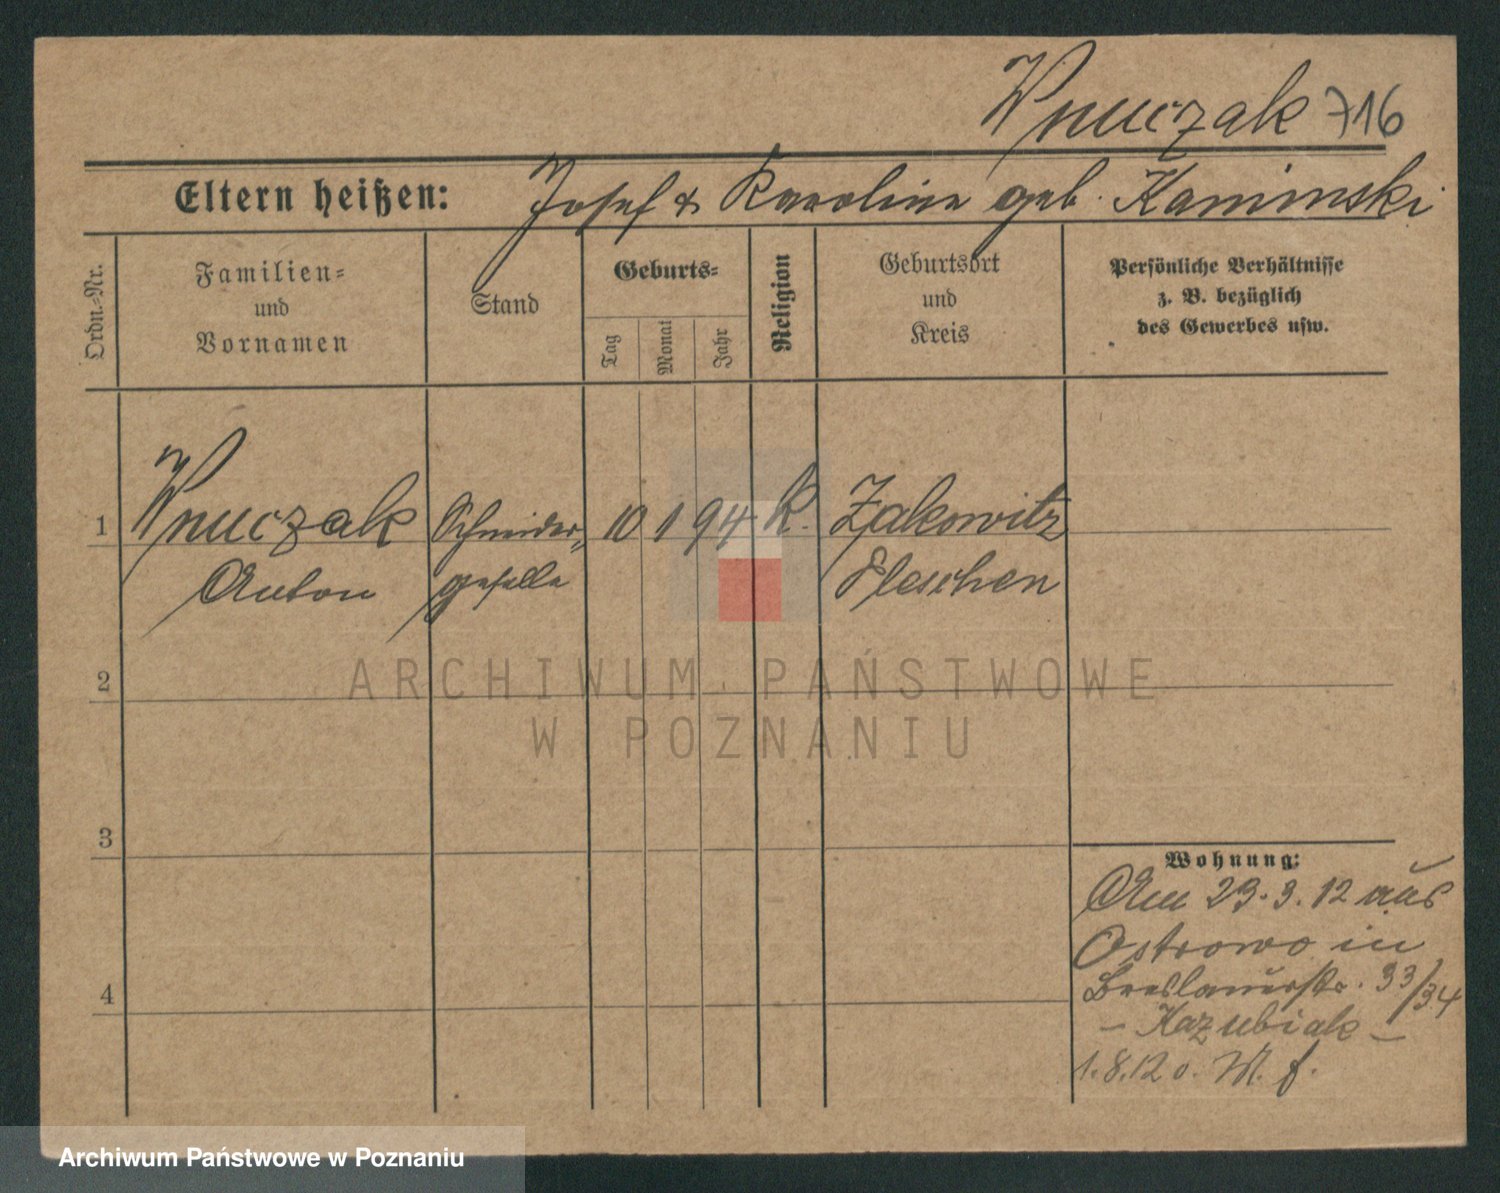 Wnuczak 716
Eltern heißen: Josef & Karoline geb. Kaminski
Ordn.-Nr.
Familien-
und
Vornamen
Stand
Geburts-
Tag
Monat
Jahr
Religion
Geburtsort
und
Kreis
Persönliche Verhältnisse
z. B. bezüglich
des Gewerbes usw.
1 Wnuczak Schneider- 10 1 94 K. Zakowitz
Anton geselle Pleschen
2
3
4
Wohnung:
Am 23.3.12 aus
Ostrowo in
Breslauerstr. 33/34
- Kazubiak -
1.8.12 o. M. f.
ARCHIWUM PAŃSTWOWE
W POZNANIU
Archiwum Państwowe w Poznaniu